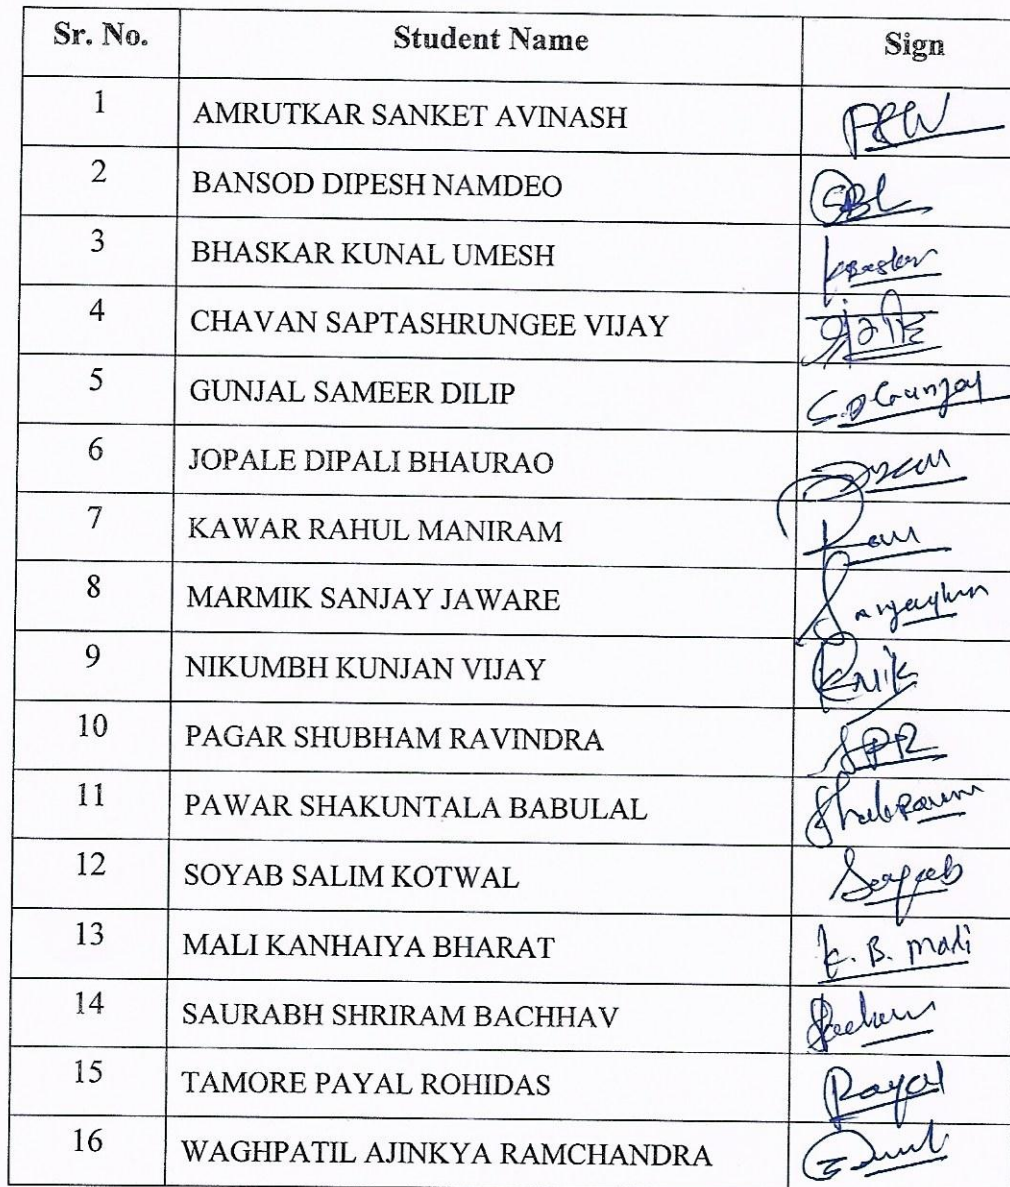 Sr. No. Student Name Sign
1 AMRUTKAR SANKET AVINASH
2 BANSOD DIPESH NAMDEO
3 BHASKAR KUNAL UMESH
4 CHAVAN SAPTASHRUNGEE VIJAY
5 GUNJAL SAMEER DILIP
6 JOPALE DIPALI BHAURAO
7 KAWAR RAHUL MANIRAM
8 MARMIK SANJAY JAWARE
9 NIKUMBH KUNJAN VIJAY
10 PAGAR SHUBHAM RAVINDRA SPR
11 PAWAR SHAKUNTALA BABULAL
12 SOYAB SALIM KOTWAL
13 MALI KANHAIYA BHARAT K. B. Mali
14 SAURABH SHRIRAM BACHHAV
15 TAMORE PAYAL ROHIDAS Payal
16 WAGHPATIL AJINKYA RAMCHANDRA